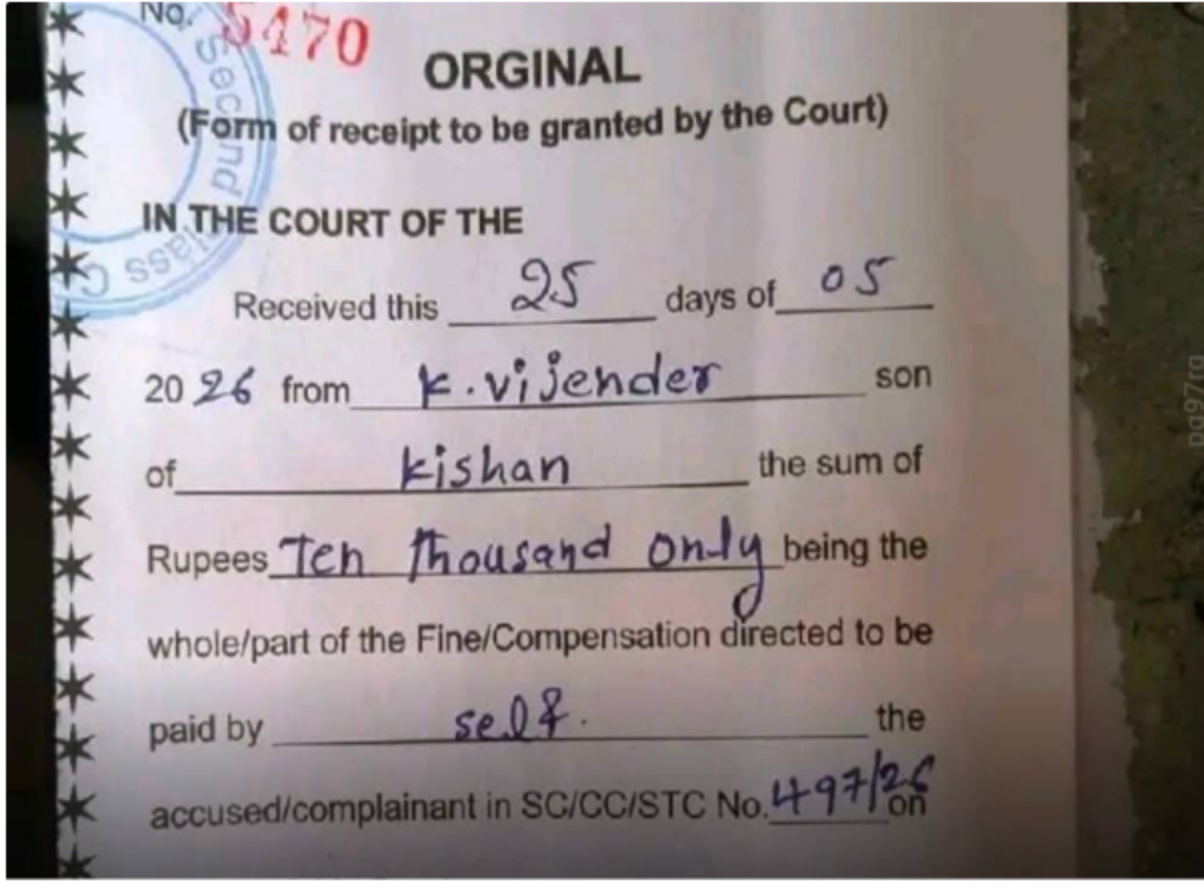 No. 5470
ORGINAL
(Form of receipt to be granted by the Court)
Second Class
IN THE COURT OF THE
Received this 25 days of 05
2026 from K. vijender son
of kishan the sum of
Rupees Ten Thousand only being the
whole/part of the Fine/Compensation directed to be
paid by self. the
accused/complainant in SC/CC/STC No. 497/26 on
pq97rq